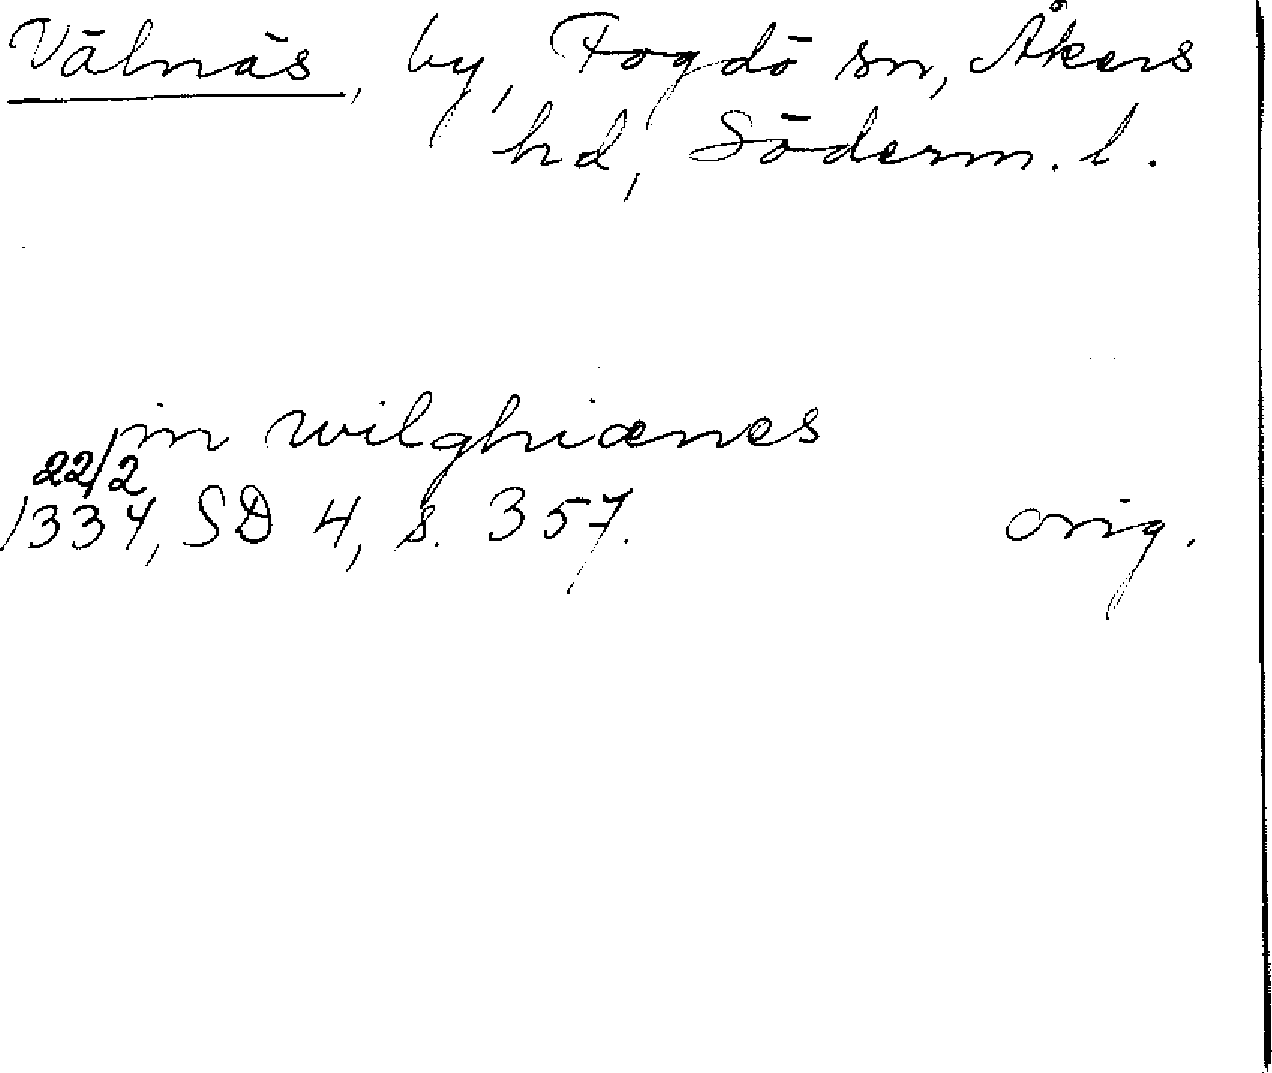 Välnäs, by, Fogdö sn, Åkers
hd, Söderm. l.
in wilghiænes
22/2
1334, SD 4, s. 357. orig.